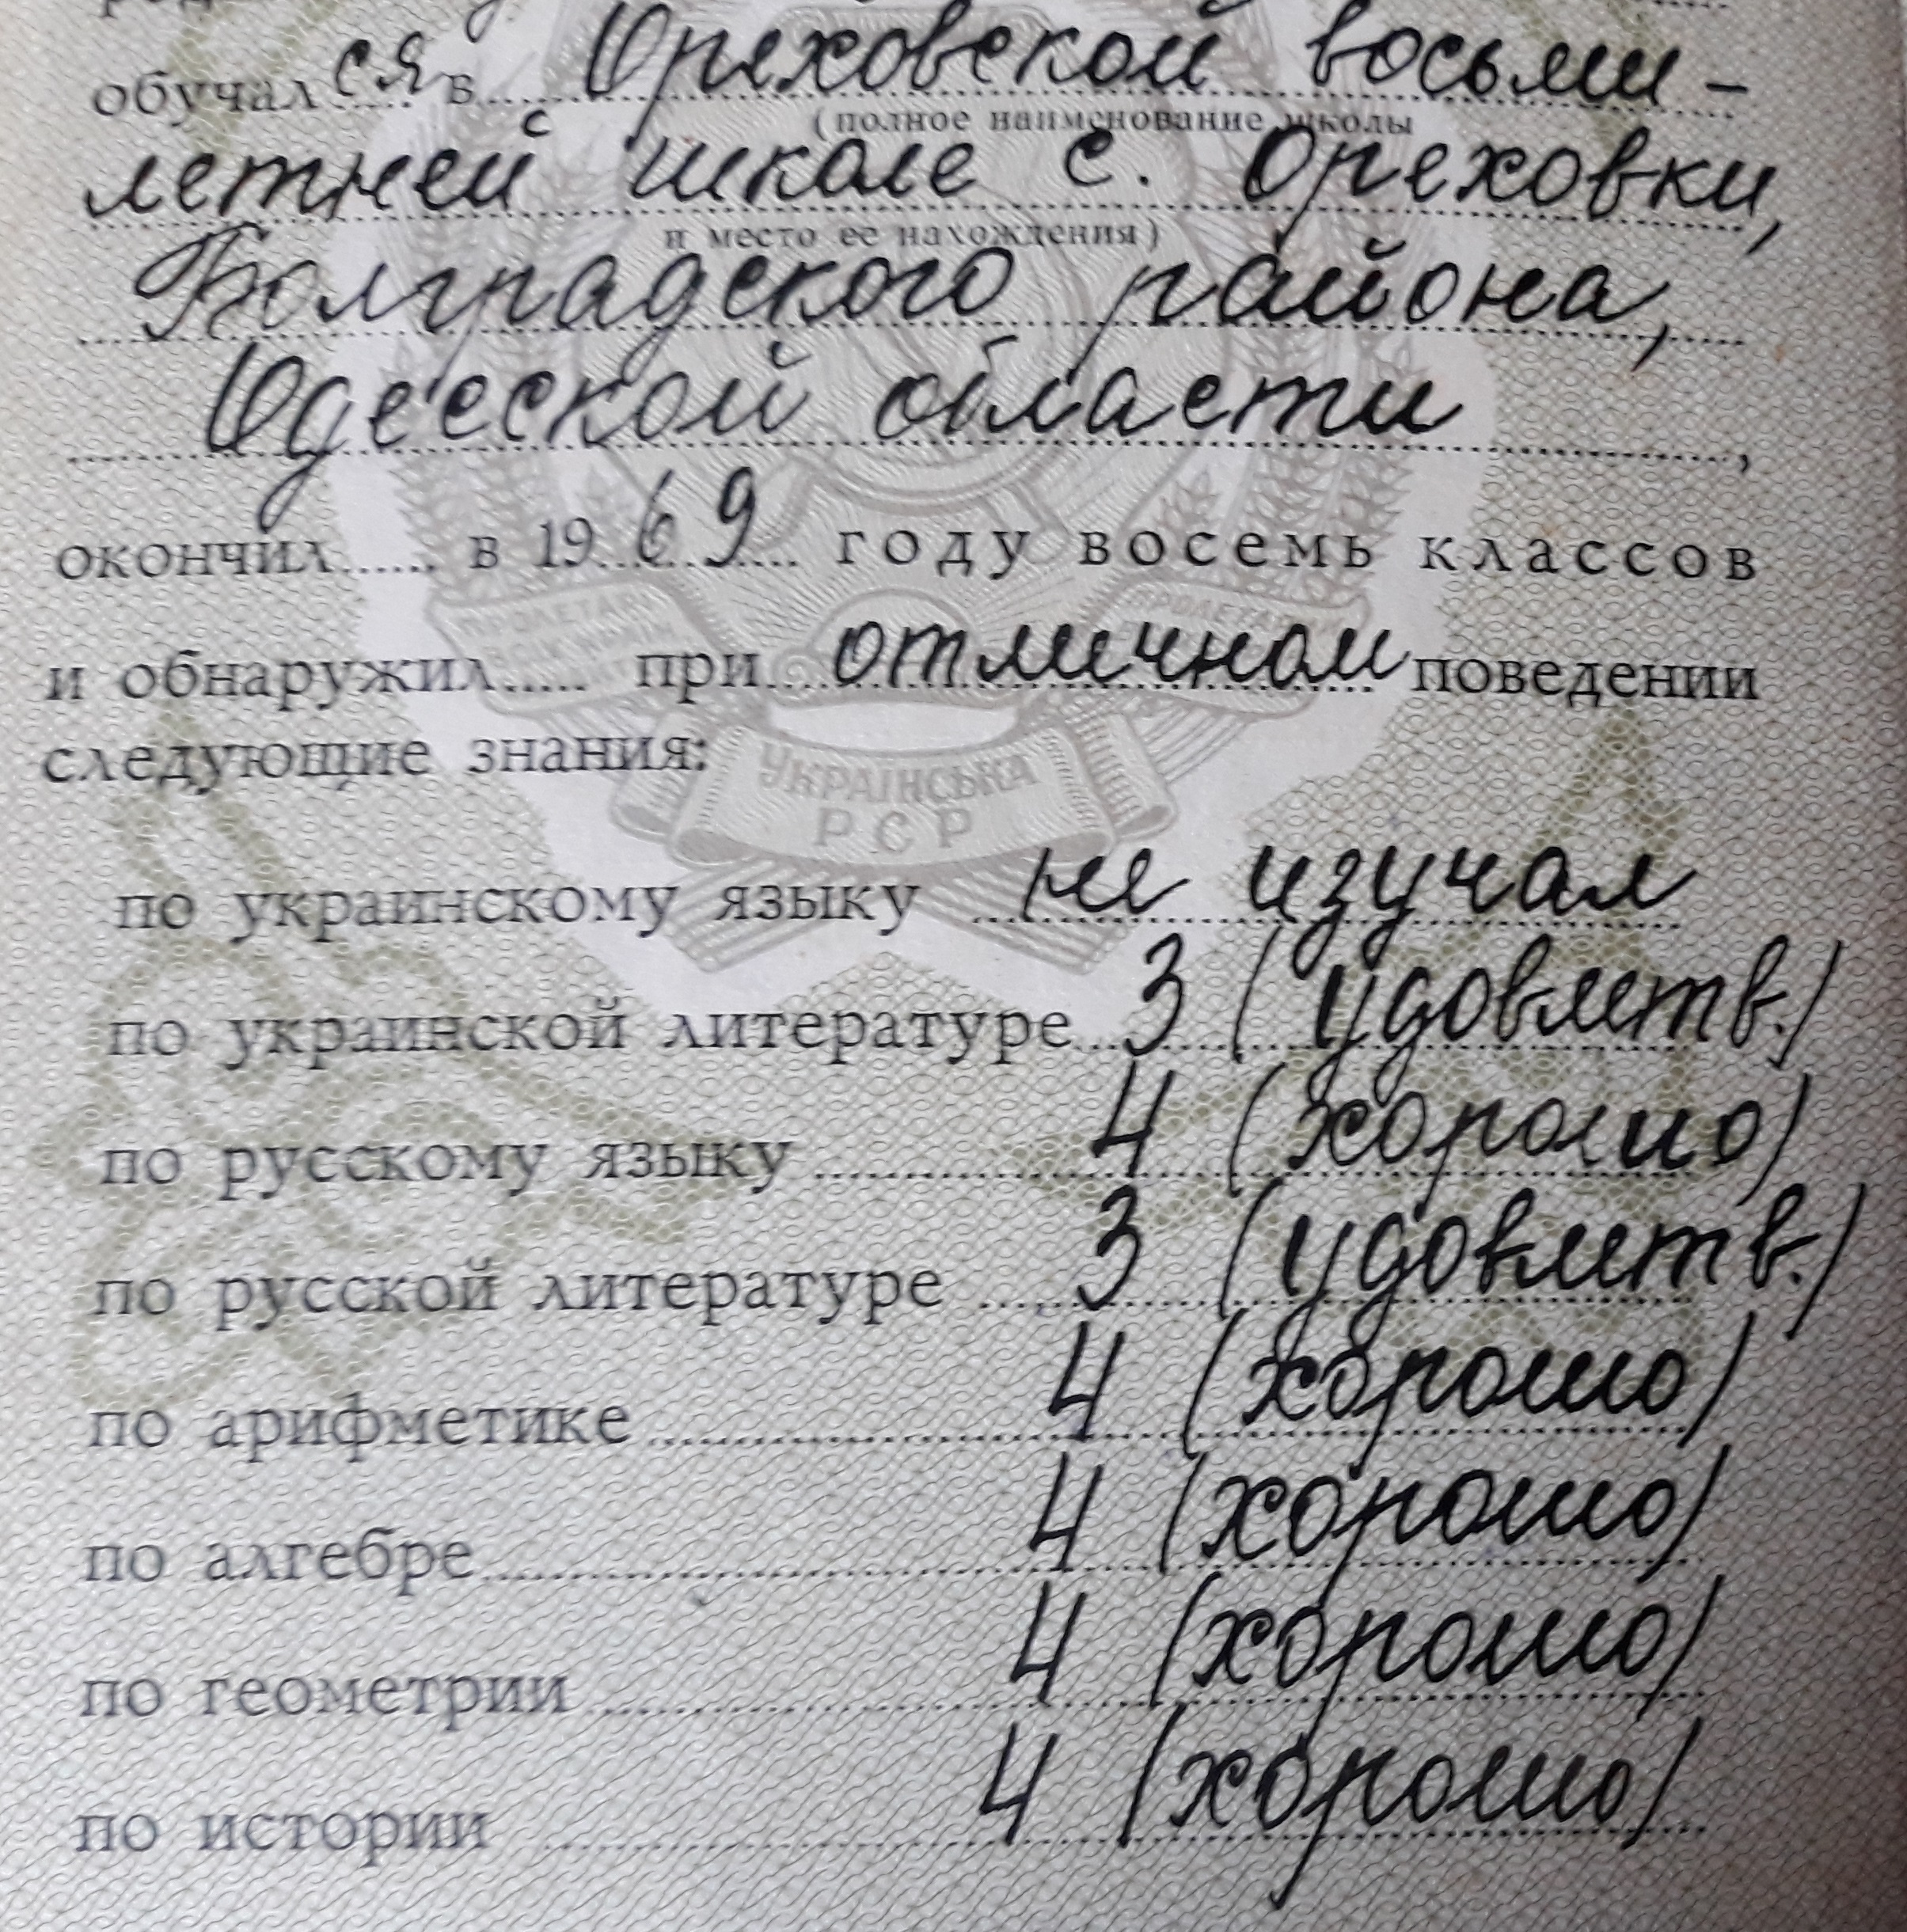 обучался в Ореховской восьми-
(полное наименование школы
летней школе с. Ореховки,
и место ее нахождения)
Болградского района,
Одесской области,
окончил в 1969 году восемь классов
и обнаружил при отличном поведении
следующие знания:
УКРАЇНСЬКА
РСР
по украинскому языку не изучал
по украинской литературе 3 (удовлетв.)
по русскому языку 4 (хорошо)
по русской литературе 3 (удовлетв.)
по арифметике 4 (хорошо)
по алгебре 4 (хорошо)
по геометрии 4 (хорошо)
по истории 4 (хорошо)